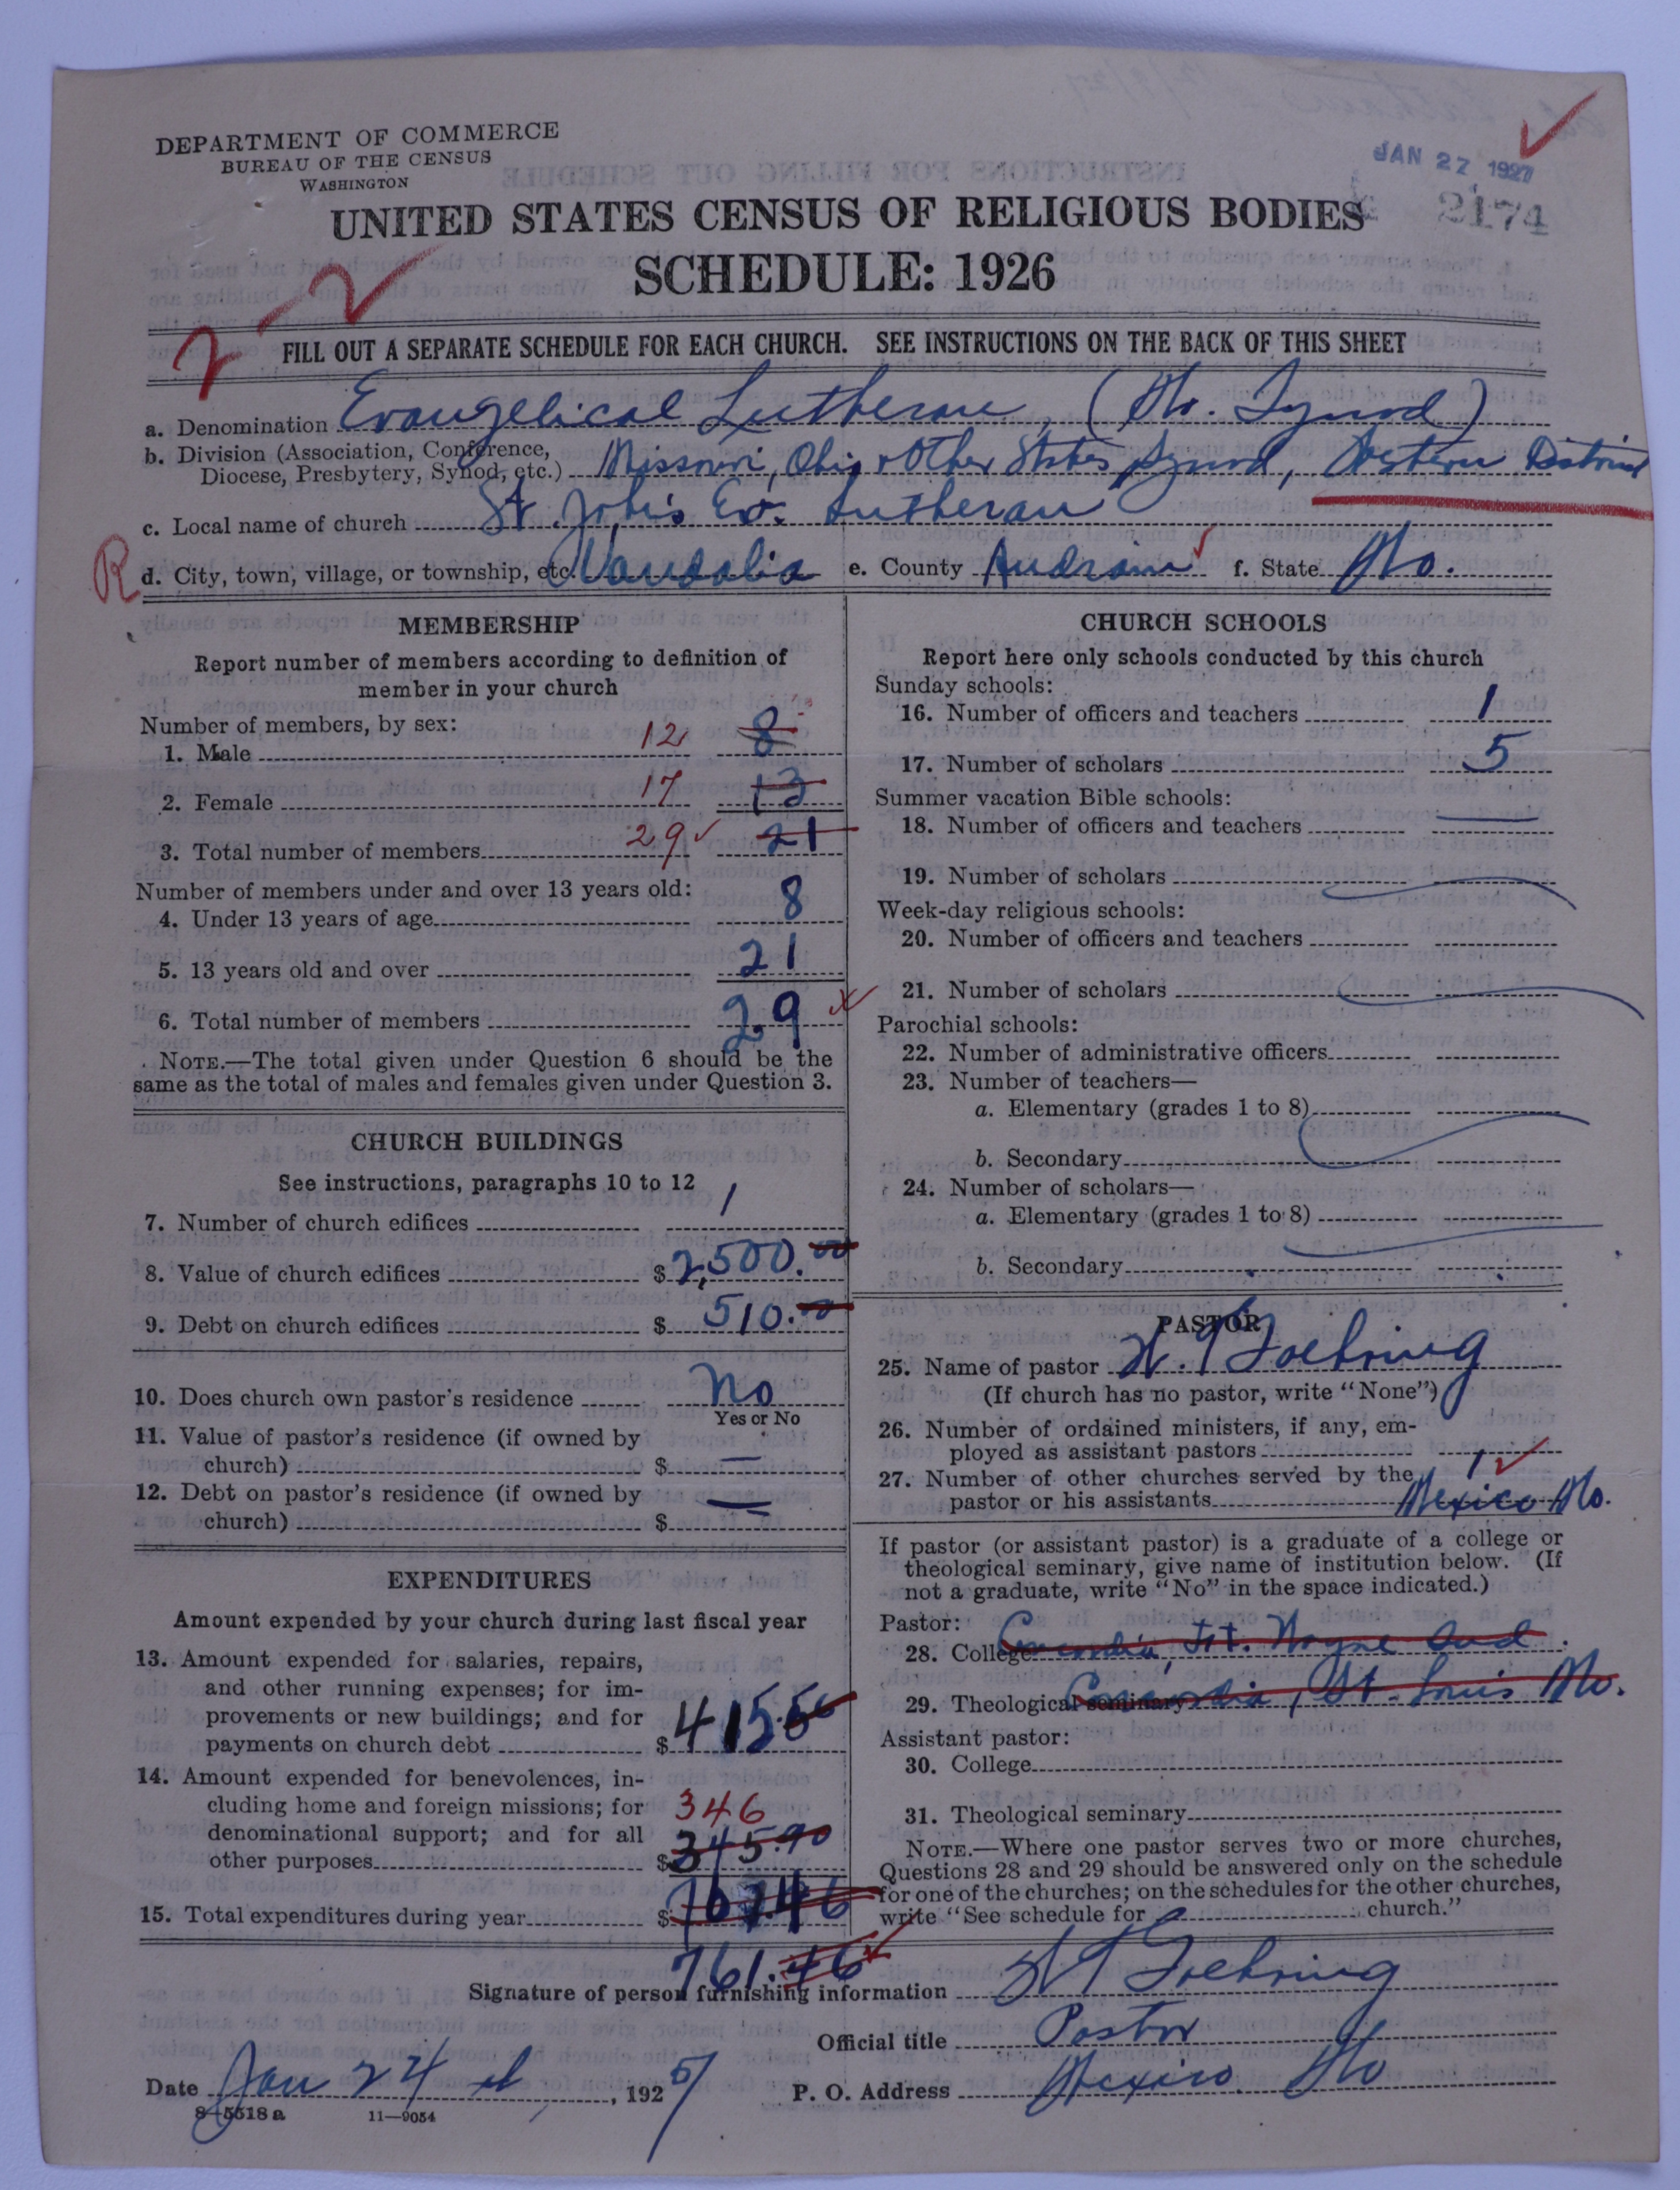 DEPARTMENT OF COMMERCE
BUREAU OF THE CENSUS
WASHINGTON
JAN 27 1927
2174
UNITED STATES CENSUS OF RELIGIOUS BODIES
SCHEDULE: 1926
2
FILL OUT A SEPARATE SCHEDULE FOR EACH CHURCH. SEE INSTRUCTIONS ON THE BACK OF THIS SHEET
a. Denomination Evangelical Lutheran, (Mo. Synod)
b. Division (Association, Conference,
Diocese, Presbytery, Synod, etc.) Missouri, Ohio & Other States Synod, Western District
c. Local name of church St. John's Ev. Lutheran
R
d. City, town, village, or township, etc. Vandalia e. County Audrain f. State Mo.
MEMBERSHIP
Report number of members according to definition of
member in your church
Number of members, by sex:
1. Male 12 8
2. Female 17 13
3. Total number of members 29 21
Number of members under and over 13 years old:
4. Under 13 years of age 8
5. 13 years old and over 21
6. Total number of members 29
NOTE.—The total given under Question 6 should be the
same as the total of males and females given under Question 3.
CHURCH BUILDINGS
See instructions, paragraphs 10 to 12
7. Number of church edifices 1
8. Value of church edifices $ 2,500.00
9. Debt on church edifices $ 510.00
10. Does church own pastor's residence No
Yes or No
11. Value of pastor's residence (if owned by
church) $ —
12. Debt on pastor's residence (if owned by
church) $ —
EXPENDITURES
Amount expended by your church during last fiscal year
13. Amount expended for salaries, repairs,
and other running expenses; for im-
provements or new buildings; and for
payments on church debt $ 415.56
14. Amount expended for benevolences, in-
cluding home and foreign missions; for 346
denominational support; and for all
other purposes $ 345.90
15. Total expenditures during year $ 761.46
761.46
CHURCH SCHOOLS
Report here only schools conducted by this church
Sunday schools:
16. Number of officers and teachers 1
17. Number of scholars 5
Summer vacation Bible schools:
18. Number of officers and teachers
19. Number of scholars
Week-day religious schools:
20. Number of officers and teachers
21. Number of scholars
Parochial schools:
22. Number of administrative officers
23. Number of teachers—
a. Elementary (grades 1 to 8)
b. Secondary
24. Number of scholars—
a. Elementary (grades 1 to 8)
b. Secondary
PASTOR
25. Name of pastor
(If church has no pastor, write "None")
26. Number of ordained ministers, if any, em-
ployed as assistant pastors
27. Number of other churches served by the 1
pastor or his assistants Mexico Mo.
If pastor (or assistant pastor) is a graduate of a college or
theological seminary, give name of institution below. (If
not a graduate, write "No" in the space indicated.)
Pastor:
28. College Concordia, Ft. Wayne Ind.
29. Theological seminary Concordia, St. Louis Mo.
Assistant pastor:
30. College
31. Theological seminary
NOTE.—Where one pastor serves two or more churches,
Questions 28 and 29 should be answered only on the schedule
for one of the churches; on the schedules for the other churches,
write "See schedule for church."
Signature of person furnishing information
Official title Pastor
Date Jan 24 , 1927 P. O. Address Mexico Mo
8—5518 a 11—9054